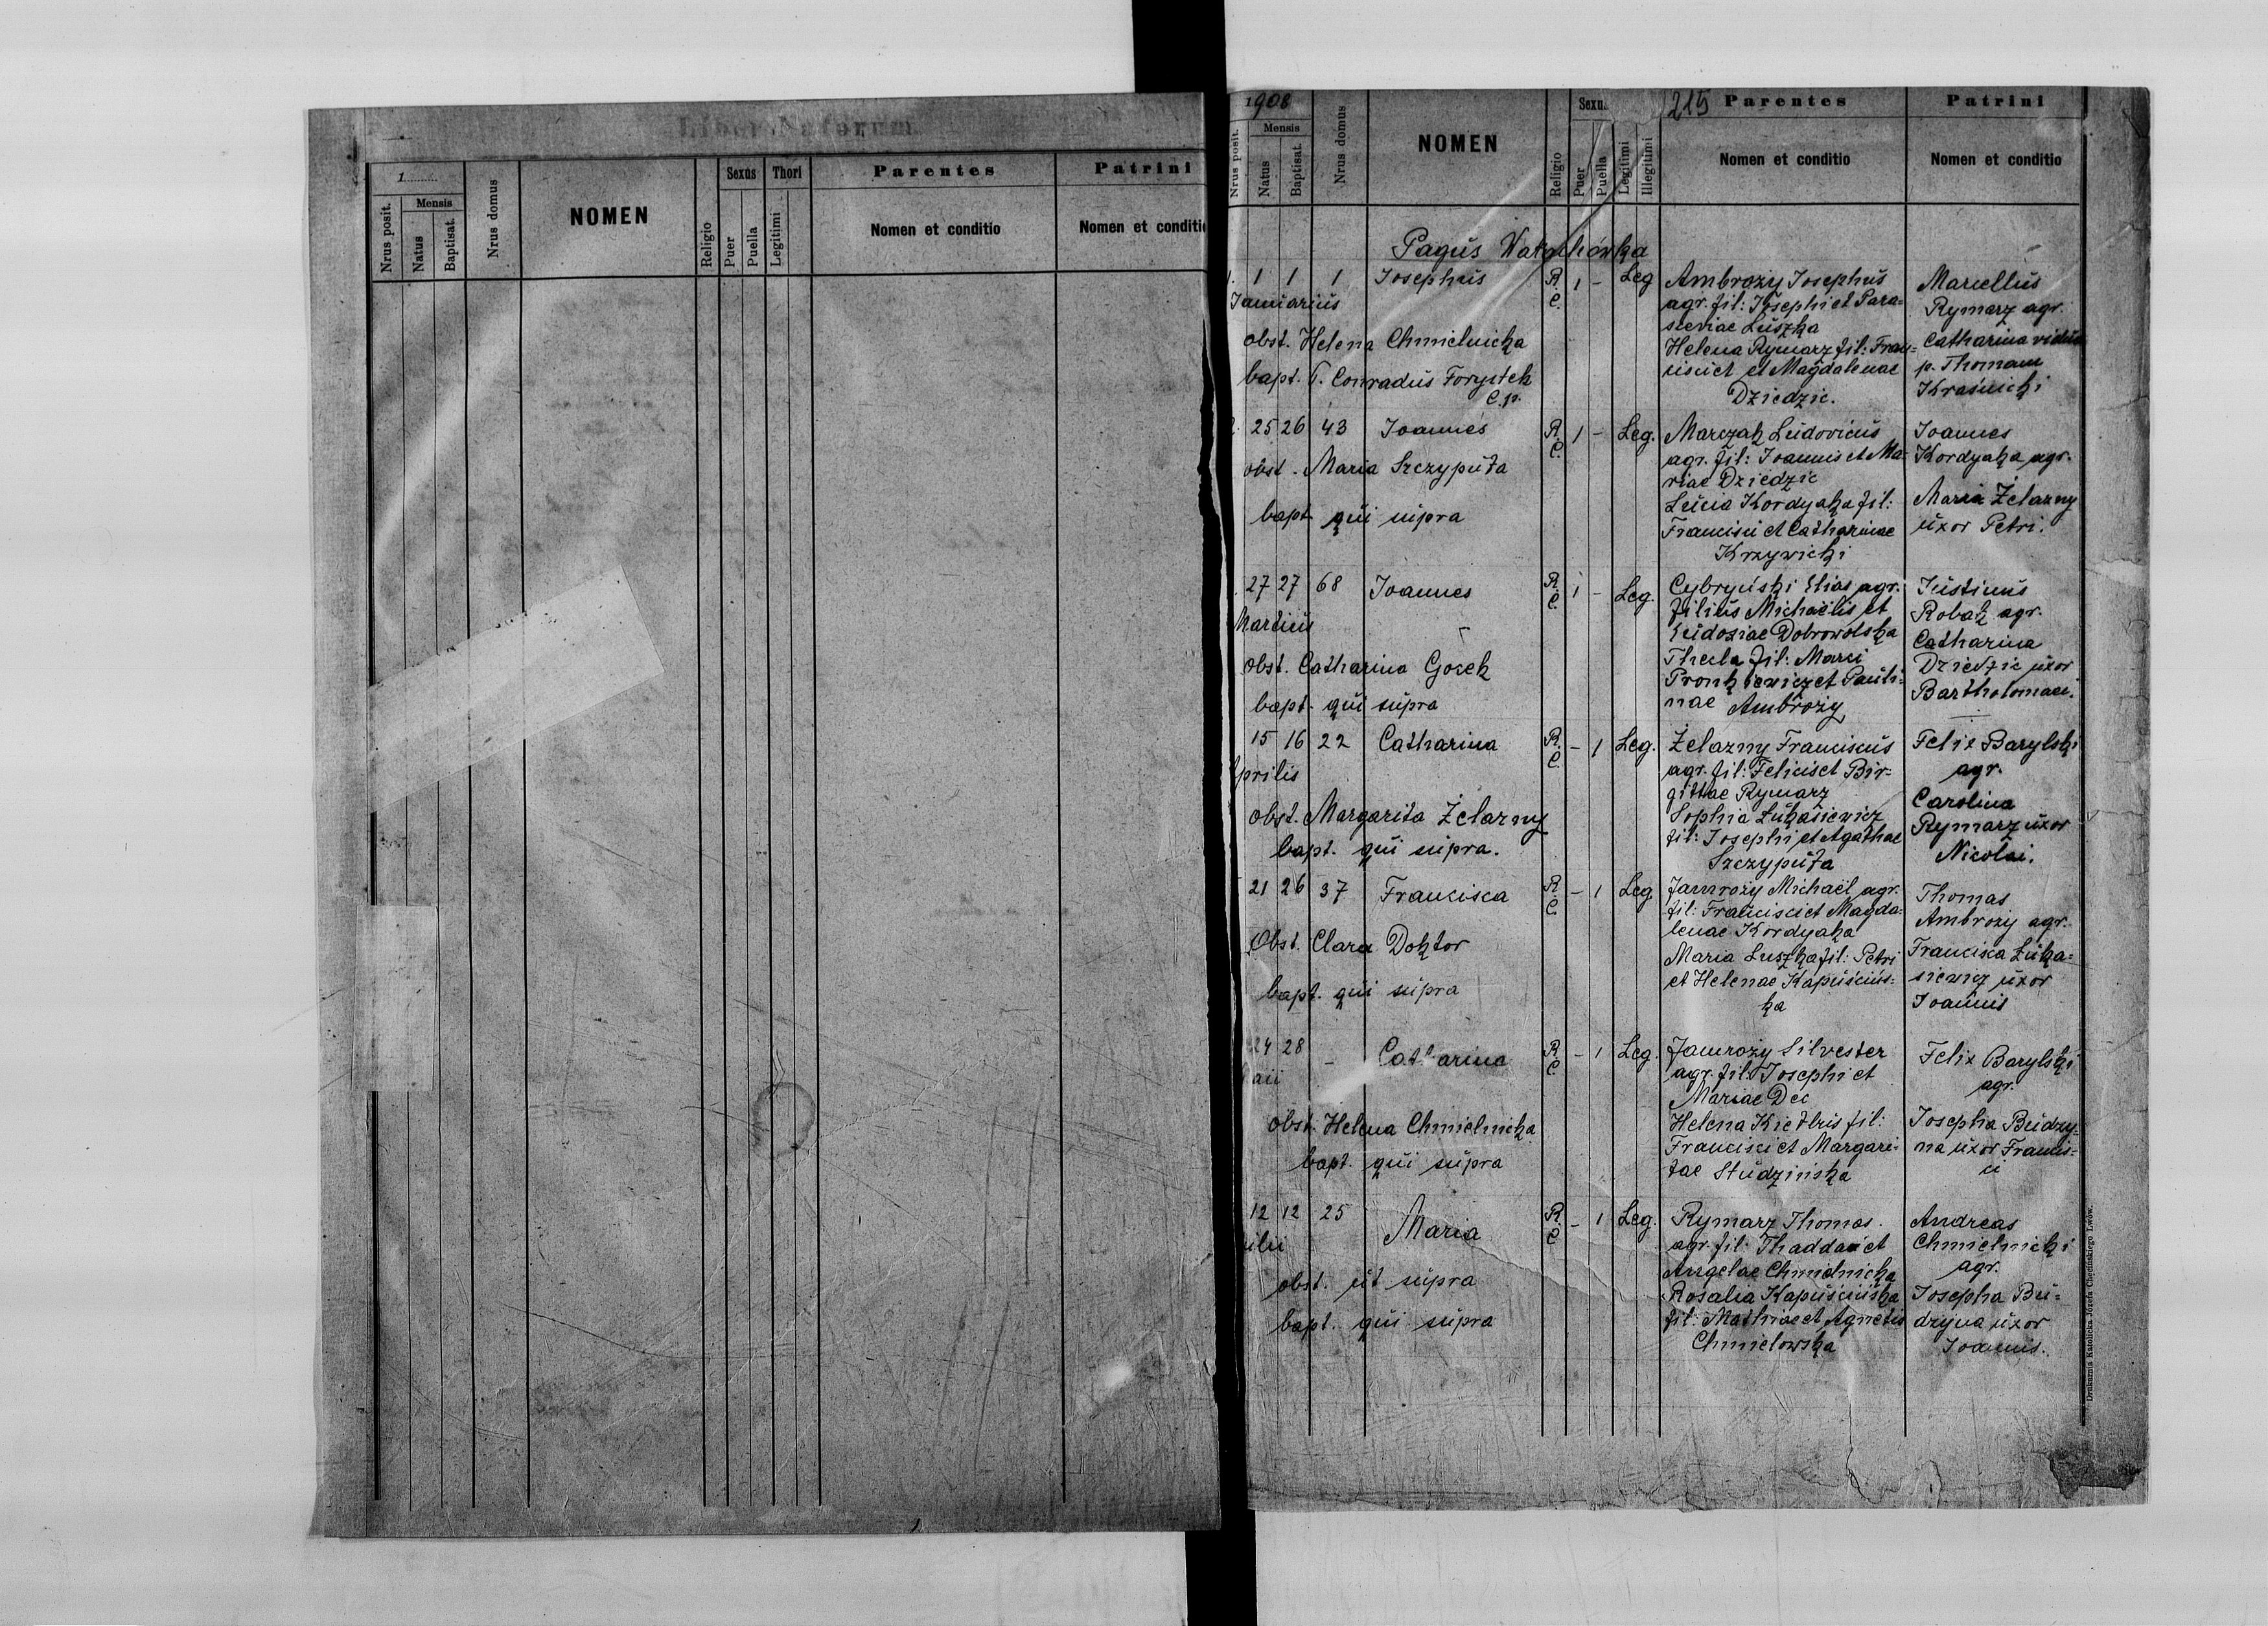 Liber Natorum
1
Nrus posit.
Mensis
Natus
Baptisat.
Nrus domus
NOMEN
Religio
Sexus
Puer
Puella
Thori
Legitimi
Parentes
Nomen et conditio
Patrini
Nomen et conditi
1908
Nrus posit.
Mensis
Natus
Baptisat.
Nrus domus
NOMEN
Religio
Sexu
Puer
Puella
Legitimi
Illegitimi
215
Parentes
Nomen et conditio
Patrini
Nomen et conditio
Pagus
1 1 1 Josephus R. C. 1 - Leg
Januarius
obst. Helena Chmielnicka
bapt. P. Conradus Forystek
C. p.
Ambroży Josephus
agr. fil: Josephi et Para=
sceviae Luszka
Helena Rymarz fil: Fran=
cisci et et Magdalenae
Dziedzic.
Marcellus
Rymarz agr.
Catharina vidua
p. Thomam
Kraśnicki
25 26 43 Joannes R. C. 1 - Leg.
obst. Maria Szczyputa
bapt. qui supra
Marczak Ludovicus
agr. fil: Joannis et Ma=
riae Dziedzic
Lucia Kordyaka fil:
Francisci et Catharinae
Krzywicki
Joannes
Kordyaka agr.
Maria Żelazny
uxor Petri.
27 27 68 Joannes R. C. 1 - Leg.
Martius
obst. Catharina Gosek
bapt. qui supra
Cybryński Elias agr.
filius Michaëlis et
Eudoxiae Dobrowolska
Thecla fil: Marci
Pronkiewicz et Pauli=
nae Ambroży
Justinus
Robak agr.
Catharina
Dziedzic uxor
Bartholomaei.
15 16 22 Catharina R. C. - 1 Leg.
prilis
obst. Margarita Żelazny
bapt. qui supra.
Żelazny Franciscus
agr. fil: Felicis et Bir=
gittae Rymarz
Sophia Łukasiewicz
fil: Josephi et Agathae
Szczyputa
Felix Barylski
agr.
Carolina
Rymarz uxor
Nicolai.
21 26 37 Francisca R. C. - 1 Leg.
Obst. Clara Doktor
bapt. qui supra
Jamroży Michaël agr.
fil: Francisci et Magda=
lenae Kordyaka
Maria Luszka fil: Petri
et Helenae Kapuścińs=
ka
Thomas
Ambroży agr.
Francisca Łuka=
siewicz uxor
Joannis
24 28 - Catharina R. C. - 1 Leg.
aii
obst. Helena Chmielnicka
bapt. qui supra
Jamroży Silvester
agr. fil: Josephi et
Mariae Dec
Helena fil:
Francisci et Margari=
tae Studzińska
Felix Barylski
agr.
Josepha Budzy=
na uxor Francis=
ci
12 12 25 Maria R. C. - 1 Leg.
ulii
obst. ut supra
bapt. qui supra
Rymarz Thomas.
agr. fil: Thaddaei et
Angelae Chmielnicka
Rosalia Kapuścińska
fil: Mathiae et Agnetis
Chmielowska
Andreas
Chmielnicki
agr.
Josepha Bu=
dzyna uxor
Joannis.
Drukarnia Katolicka Józefa Chęcińskiego Lwów.